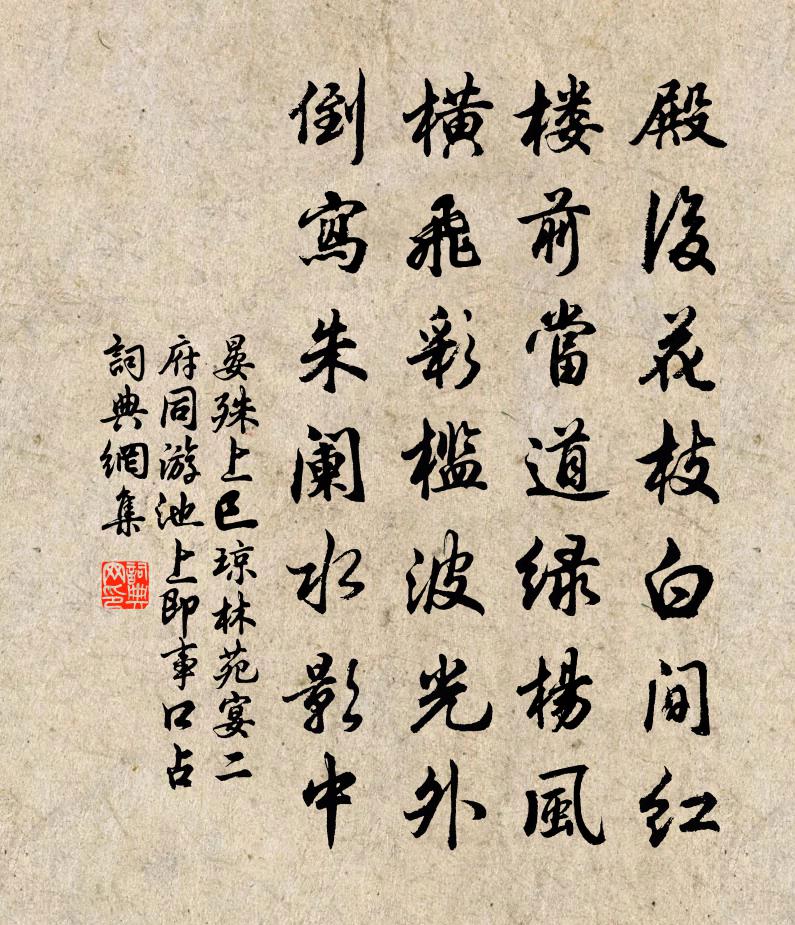 殿後花枝白間红
楼前當道绿楊風
橫飛彩檻波光外
倒寫朱阑水影中
晏殊上巳琼林苑宴二
府同游池上即事口占
詞典網集
詞典
网印